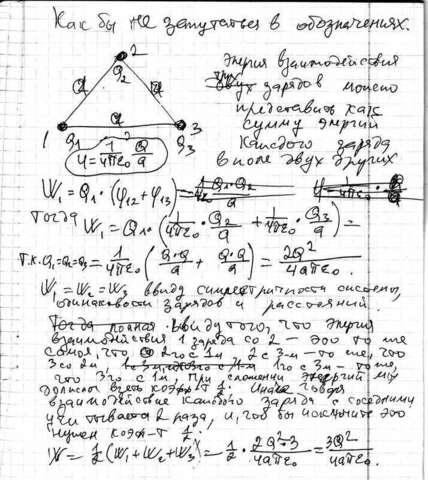 Как бы не запутаться в обозначениях.
2
q₂
a
a
a
1
q₁
3
q₃
φ = 1/4πε₀ · Q/a
Энергия взаимодействия
трех зарядов можно
представить как
сумму энергий
каждого заряда
в поле двух других
W₁ = Q₁·(φ₁₂+φ₁₃)
Тогда W₁ = Q₁·(1/4πε₀ · Q₂/a + 1/4πε₀ · Q₃/a) =
т.к. Q₁=Q₂=Q₃ = 1/4πε₀ (Q·Q/a + Q·Q/a) = 2Q²/4aπε₀.
W₁ = W₂ = W₃ ввиду симметричности системы,
одинаковости зарядов и расстояний.
Тогда полная. Ввиду того, что энергия
взаимодействия 1 заряда со 2 – это то же
самое, что 2го с 1м 2 с 3-м – то же, что
3 со 2м 1го с 3м – то же,
что 3го с 1м. При сложении энергий мы
должны взять коэф-т 1/2. Иначе говоря
взаимодействие каждого заряда с соседним
учитывается 2 раза, и, чтобы исключить это
нужен коэф-т 1/2.
W = 1/2 (W₁ + W₂ + W₃) = 1/2 · 2Q²·3/4aπε₀ = 3Q²/4aπε₀.